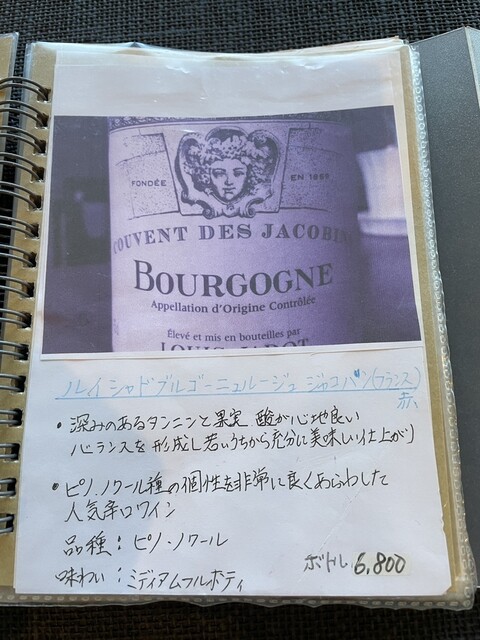 FONDÉE EN 1859
COUVENT DES JACOBINS
BOURGOGNE
Appellation d'Origine Contrôlée
Élevé et mis en bouteilles par
LOUIS JADOT
ルイ シャド ブルゴーニュ ルージュ ジャコバン(フランス)
赤
・深みのあるタンニンと果実 酸が心地良い
バランスを形成し若いうちから充分に美味しい仕上がり
・ピノ・ノワール種の個性を非常に良くあらわした
人気辛口ワイン
品種:ピノ・ノワール
ボトル 6,800
味わい:ミディアムフルボディ